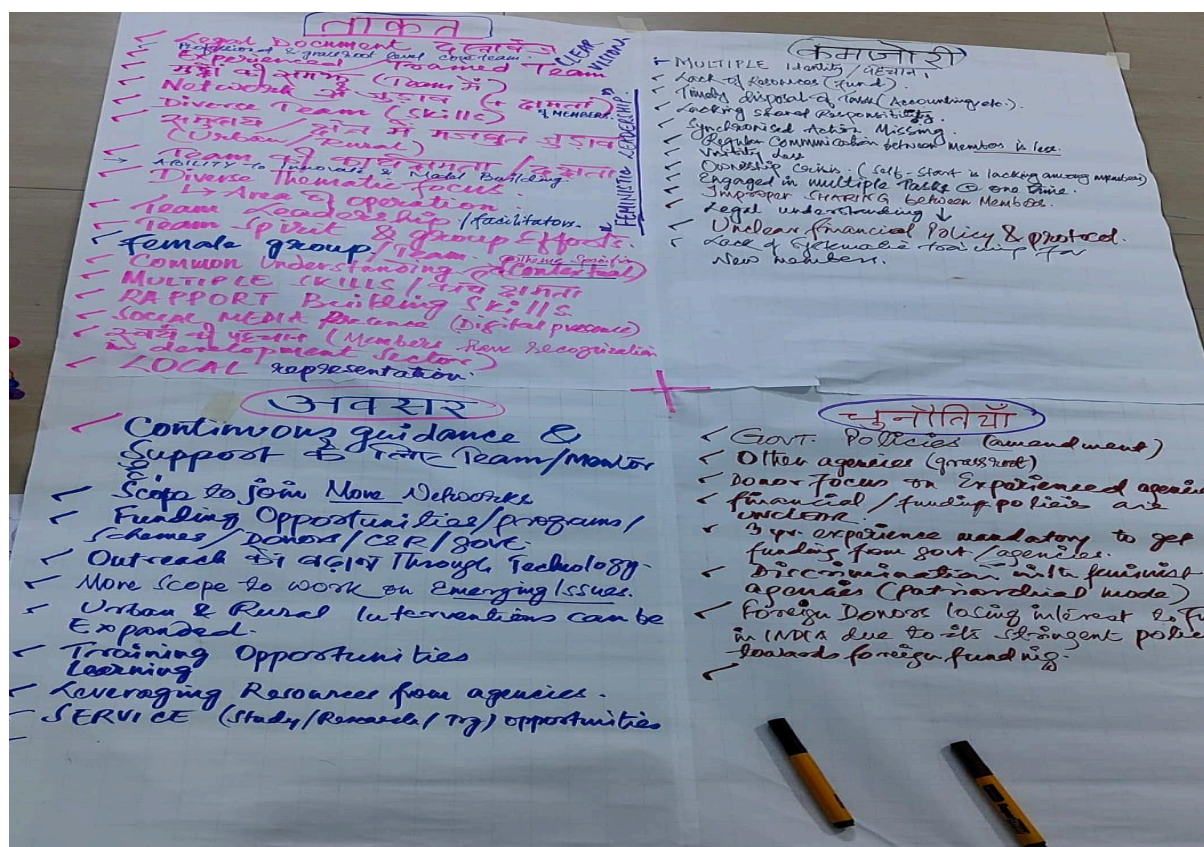 ताकत
✓ Legal Document दस्तावेज
Professional & grassroot level core team.
✓ Experienced Trained Team
✓ मुद्दों की समझ (Team में)
✓ Network से जुड़ाव (+ क्षमता)
of MEMBERS
✓ Diverse Team (Skills)
✓ समुदाय / क्षेत्र में मजबूत जुड़ाव
(Urban/Rural)
✓ Team की कार्यक्षमता / दक्षता
→ ABILITY to Innovate & Model Building.
✓ Diverse Thematic focus
↳ Area of operation.
✓ Team Leadership / facilitators.
✓ Team Spirit & group Efforts.
✓ female group/Team.
✓ Common Understanding (Contextual)
✓ MULTIPLE SKILLS / कार्य क्षमता
✓ RAPPORT Building Skills
✓ SOCIAL MEDIA Presence (Digital presence)
✓ स्वयं की पहचान (Members have recognization
in development Sector)
✓ LOCAL representation.
CLEAR
VISION
"FEMINISTIC LEADERSHIP."
कमजोरी
MULTIPLE Identity / पहचान.
✓ Lack of Resources (fund)
✓ Timely disposal of Tasks (Accounting etc.).
✓ Lacking shared Responsibility.
✓ Synchronised Action Missing.
✓ Regular Communication between Members is less.
✓ Visibility Less
✓ Ownership Crisis. (Self-Start is lacking among members)
✓ Engaged in multiple Tasks @ one time.
✓ Improper SHARING between Members.
✓ Legal understanding ↓
✓ Unclear financial Policy & protocol.
✓ Lack of Systematic training for
New members.
अवसर
✓ Continuous guidance &
Support के लिए Team/Mentor
है.
✓ Scope to join More Networks
✓ Funding Opportunities/programs/
Schemes/Donors/CSR/Govt.
✓ Outreach को बढ़ाना Through Technology.
✓ More Scope to work on Emerging Issues.
✓ Urban & Rural Interventions can be
Expanded.
✓ Training Opportunities
Learning
✓ Leveraging Resources from agencies.
✓ SERVICE (Study/Research/Trg) opportunities
चुनौतियाँ
✓ GOVT. Policies (amendment)
✓ Other agencies (grassroot)
✓ Donor focus on Experienced agencies
✓ financial / funding policies are
UNCLEAR.
✓ 3 yr. experience mandatory to get
funding from govt / agencies.
✓ Discrimination with feminist
agencies (patriarchial mode)
✓ Foreign Donors losing interest to F
in INDIA due to its stringent polic
towards foreign funding.
✓